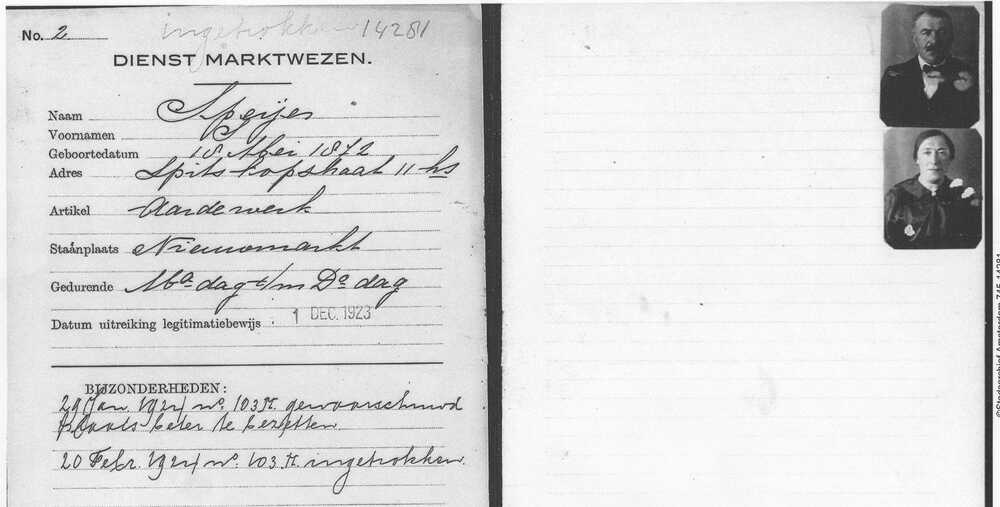 No. 2
ingetrokken 14281
DIENST MARKTWEZEN.
Naam Speijer
Voornamen S
Geboortedatum 18 Mei 1872
Adres Spitskopstraat 11 hs
Artikel Aardewerk
Staanplaats Nieuwmarkt
Gedurende Ma dag t/m Do dag
Datum uitreiking legitimatiebewijs. 1 DEC. 1923
BIJZONDERHEDEN:
29 Jan. 1924 no. 103 M. gewaarschuwd
plaats beter te bezetten.
20 Febr. 1924 no. 103 M. ingetrokken.
©Stadsarchief Amsterdam 745-14281